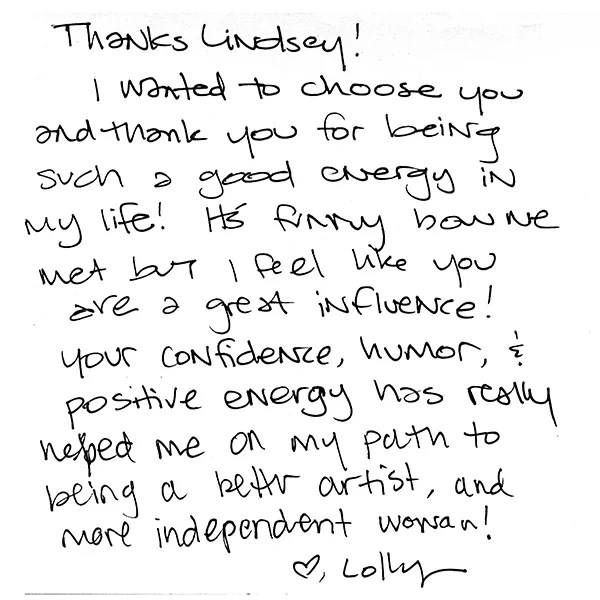 Thanks Lindsey!
I wanted to choose you
and thank you for being
such a good energy in
my life! It's funny how we
met but I feel like you
are a great influence!
your confidence, humor, &
positive energy has really
helped me on my path to
being a bettr artist, and
more independent woman!
♡, Lolly